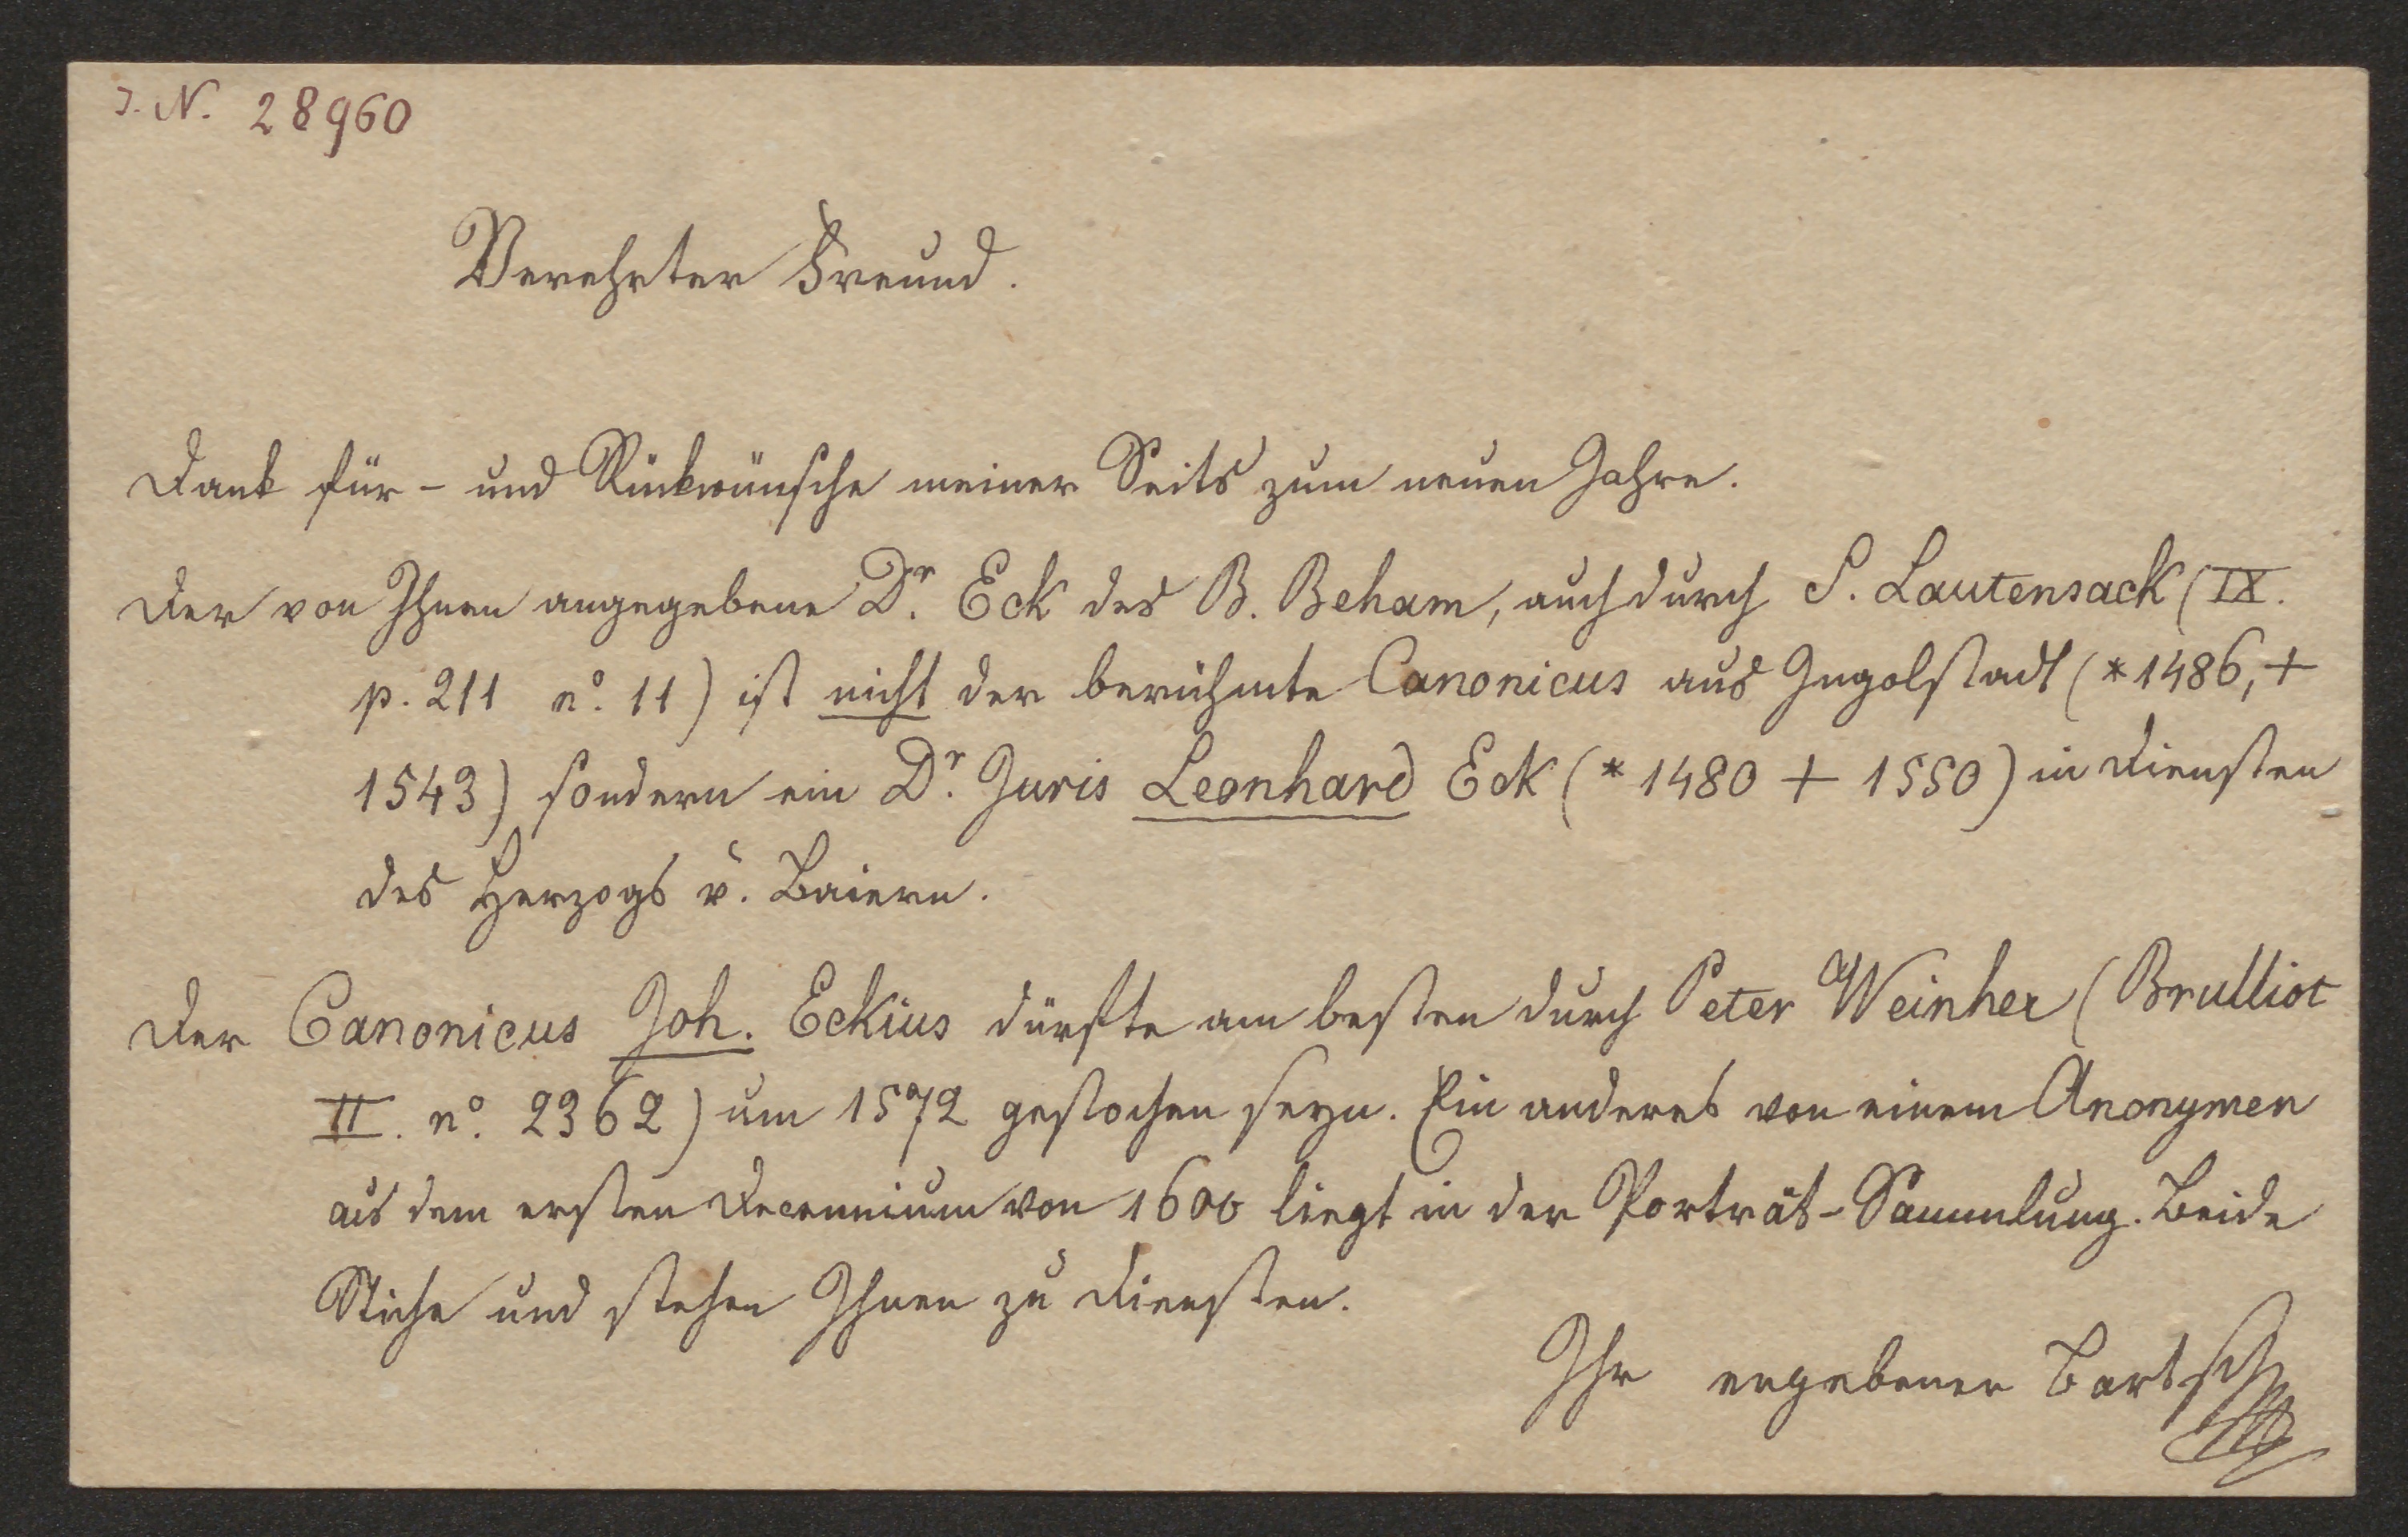 J. N. 28960
Verehrter Freund.
Dank für- und Rückwünsche meiner Seits zum neuen Jahre.
Der von Ihnen angegebene Dr. Eck des B. Beham, auch durch S. Lautensack (IX.
p. 211 no. 11) ist nicht der berühmte Canonicus aus Ingolstadt (* 1486, +
1543) sondern ein Dr. Juris Leonhard Eck (* 1480 + 1550) in Diensten
des Herzogs v. Baiern.
Der Canonicus Joh. Eckius dürfte am besten durch Peter Weinher (Brulliot
II. no. 2362) um 1572 gestochen seyn. Ein anderes von einem Anonymen
aus dem ersten Decennium von 1600 liegt in der Porträt-Sammlung. Beide
Stiche und stehen Ihnen zu Diensten.
Ihr ergebener Bartsch